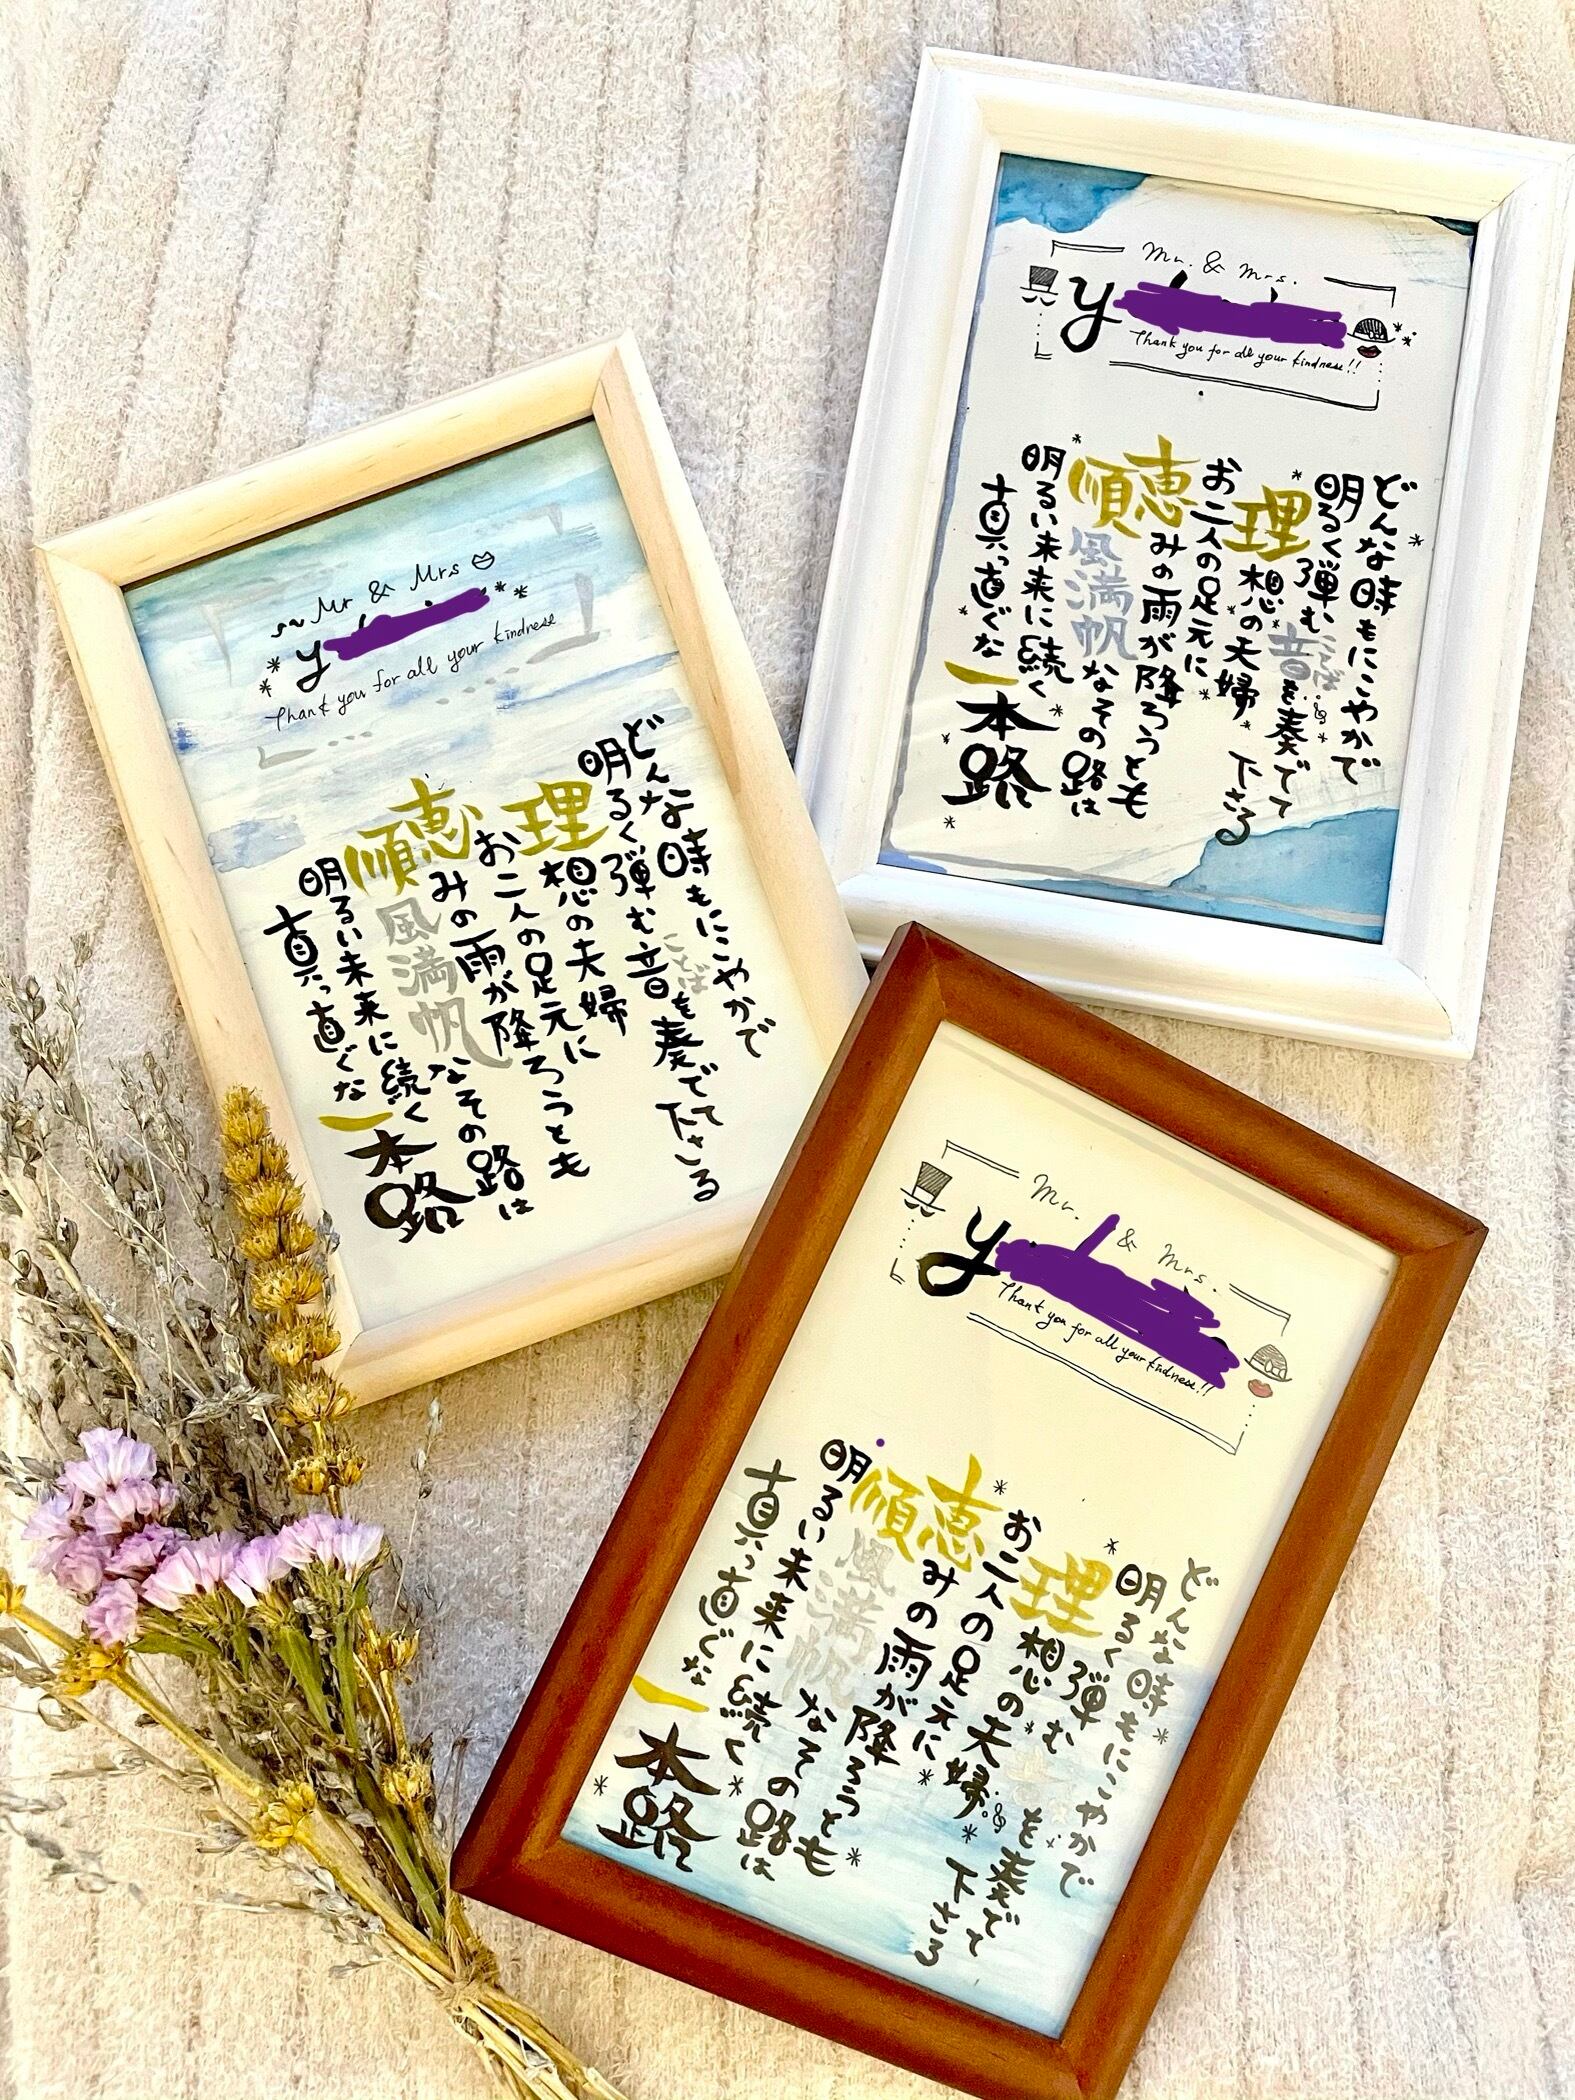 Mr & Mrs
y
Thank you for all your kindness
どんな時もにこやかで
ことば
明るく弾む音を奏でて下さる
理想の夫婦
お二人の足元に
恵みの雨が降ろうとも
順風満帆なその路は
明るい未来に続く
真っ直ぐな
一本路
Mr. & Mrs.
y
Thank you for all your kindness!!
どんな時もにこやかで
ことば
明るく弾む音を奏でて下さる
理想の夫婦
お二人の足元に
恵みの雨が降ろうとも
順風満帆なその路は
明るい未来に続く
真っ直ぐな
一本路
Mr. & Mrs.
y
Thank you for all your kindness!!
どんな時もにこやかで
明るく弾む を奏でて下さる
理想の夫婦
お二人の足元に
恵みの雨が降ろうとも
順風満帆なその路は
明るい未来に続く
真っ直ぐな
一本路